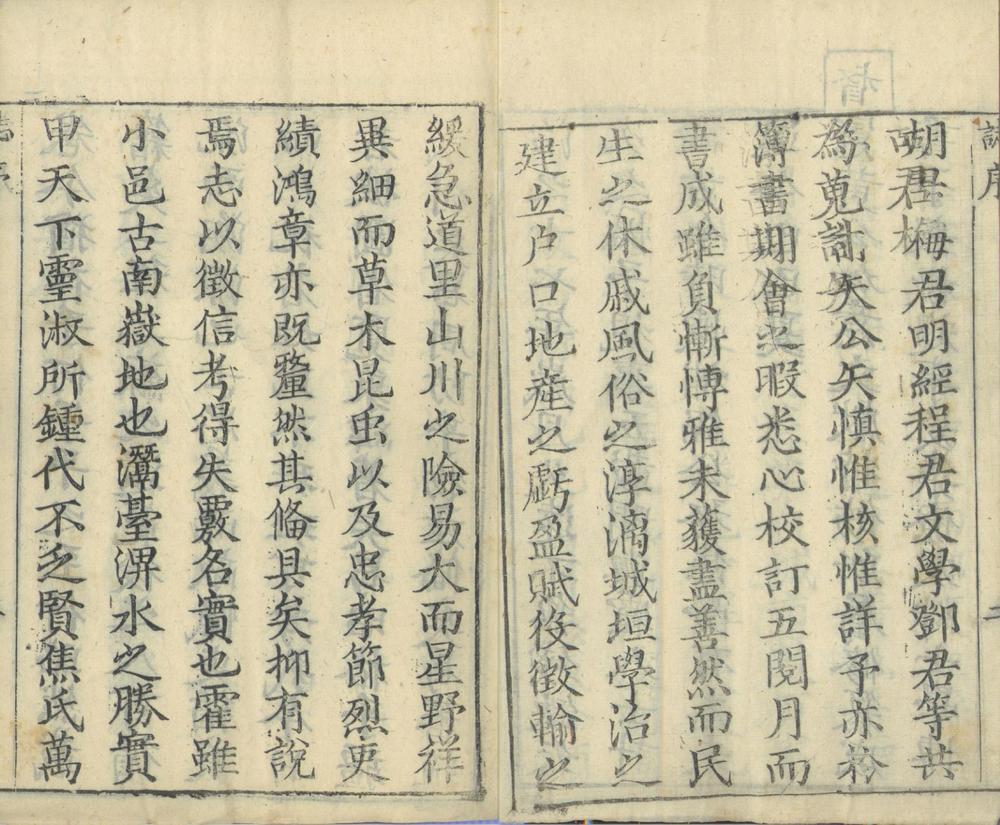 胡君梅君明經程君文學鄧君等共
為蒐討矢公矢慎惟核惟詳予亦於
簿書期會之暇悉心校訂五閱月而
書成雖負慚愽雅未獲盡善然而民
生之休戚風俗之淳漓城垣學治之
建立户口地產之虧盈賦役徵輸之
緩急道里山川之險易大而星野祥
異細而草木昆虫以及忠孝節烈吏
績鴻章亦既釐然其偹具矣抑有說
焉志以徵信考得失覈名實也霍雖
小邑古南嶽地也灊臺淠水之勝實
甲天下靈淑所鍾代不乏賢焦氏萬